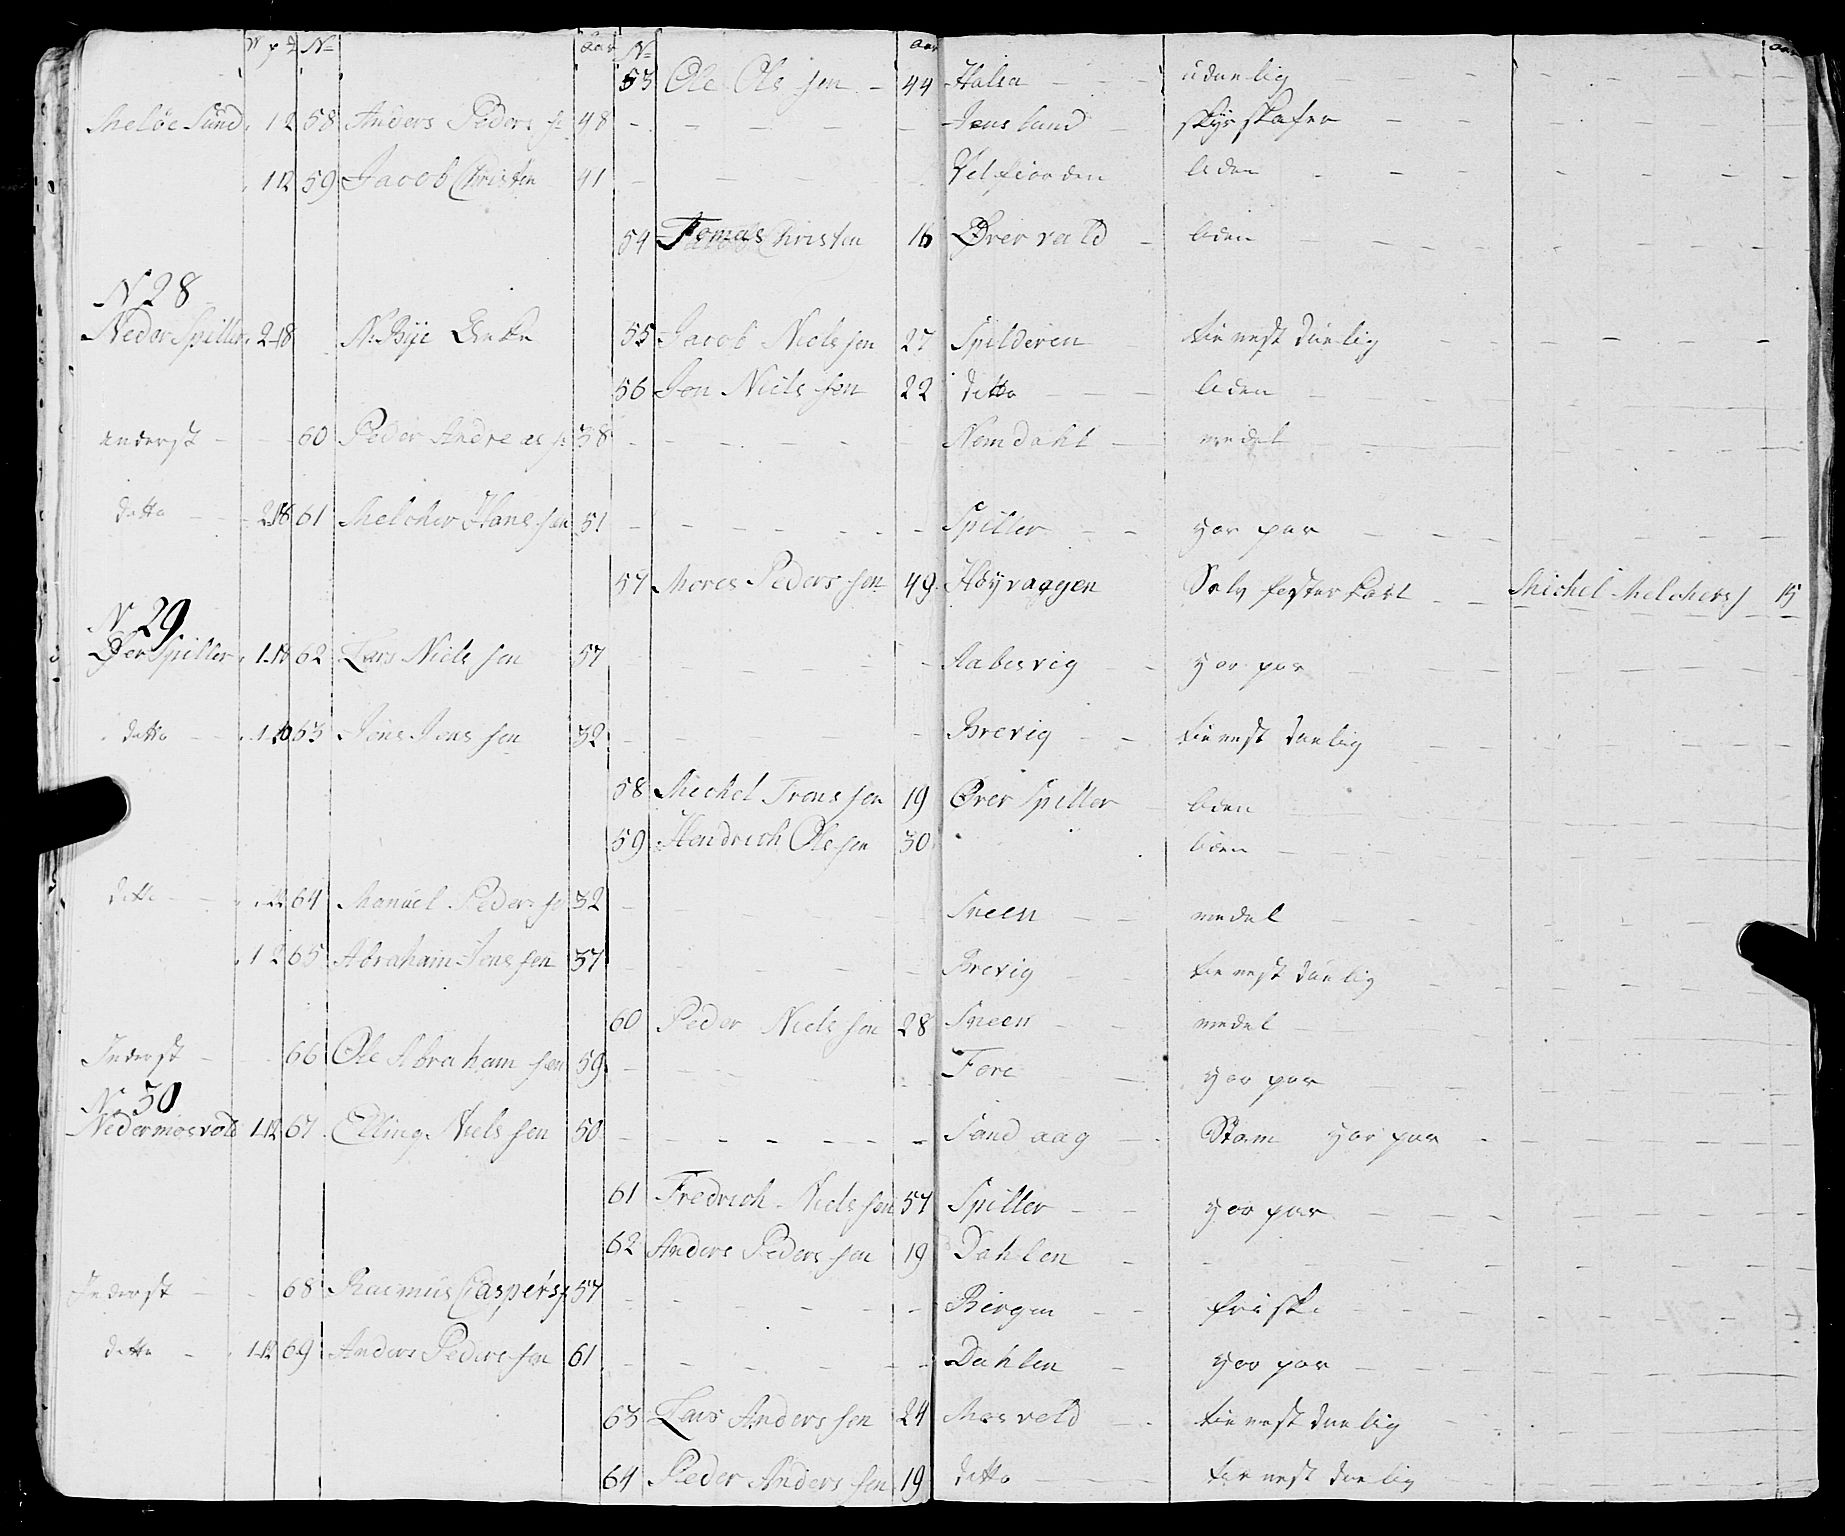 W p ÷ No aar No aar aar
53 Ole Olesen 44 Halsa udueligMeløe Sund 12 58 Anders Peders s 48 Jensland skysskafer
1 12 59 Jacob Christen 41 Velfiorden liden
54 Tomas Christen 16 Øvervald liden
N 28
Neder Spiller 2 18 N. Bye Enke 55 Jacob Nielssen 27 Spilderen tienestduelig
56 Jon Nielssen 22 ditto liden
inderst 60 Peder Andreas s 38 Nemdahl medel
ditto 2 18 61 Melcher Hanssen 51 Spiller
57 Mores Pederssen 49 Høyvaagen Michel Melchers 15
N 29
Øer Spiller 1 18 62 Lars Nielssen 57 Aabesvig
ditto 1 63 Jens Jenssen 32 Brevig tienestduelig
58 Michel Tronssen 19 Øver Spiller liden
59 Hendrich Olesen 30 liden
ditto 64 Manuel Peders s 32 Sneen medel
1 2 65 Abraham Jonssen 37 Brevig tienestduelig
60 Peder Nielssen 28 Sneen medel
Inderst 66 Ole Abrahamsen 59 Fore
N. 30
Nedermosvold 1 12 67 Elling Nielssen 50 Sandaag
61 Fredrich Nielssen 57 Spiller
62 Anders Pederssen 19 Dahlen
Inderst 68 Rasmus Caspers s 57 Bergen friske
ditto 1 12 69 Anders Pederssen 61 Dahlen
63 Lars Anderssen 24 Mosvold tienestduelig
64 Peder Anderssen 19 ditto tienestduelig